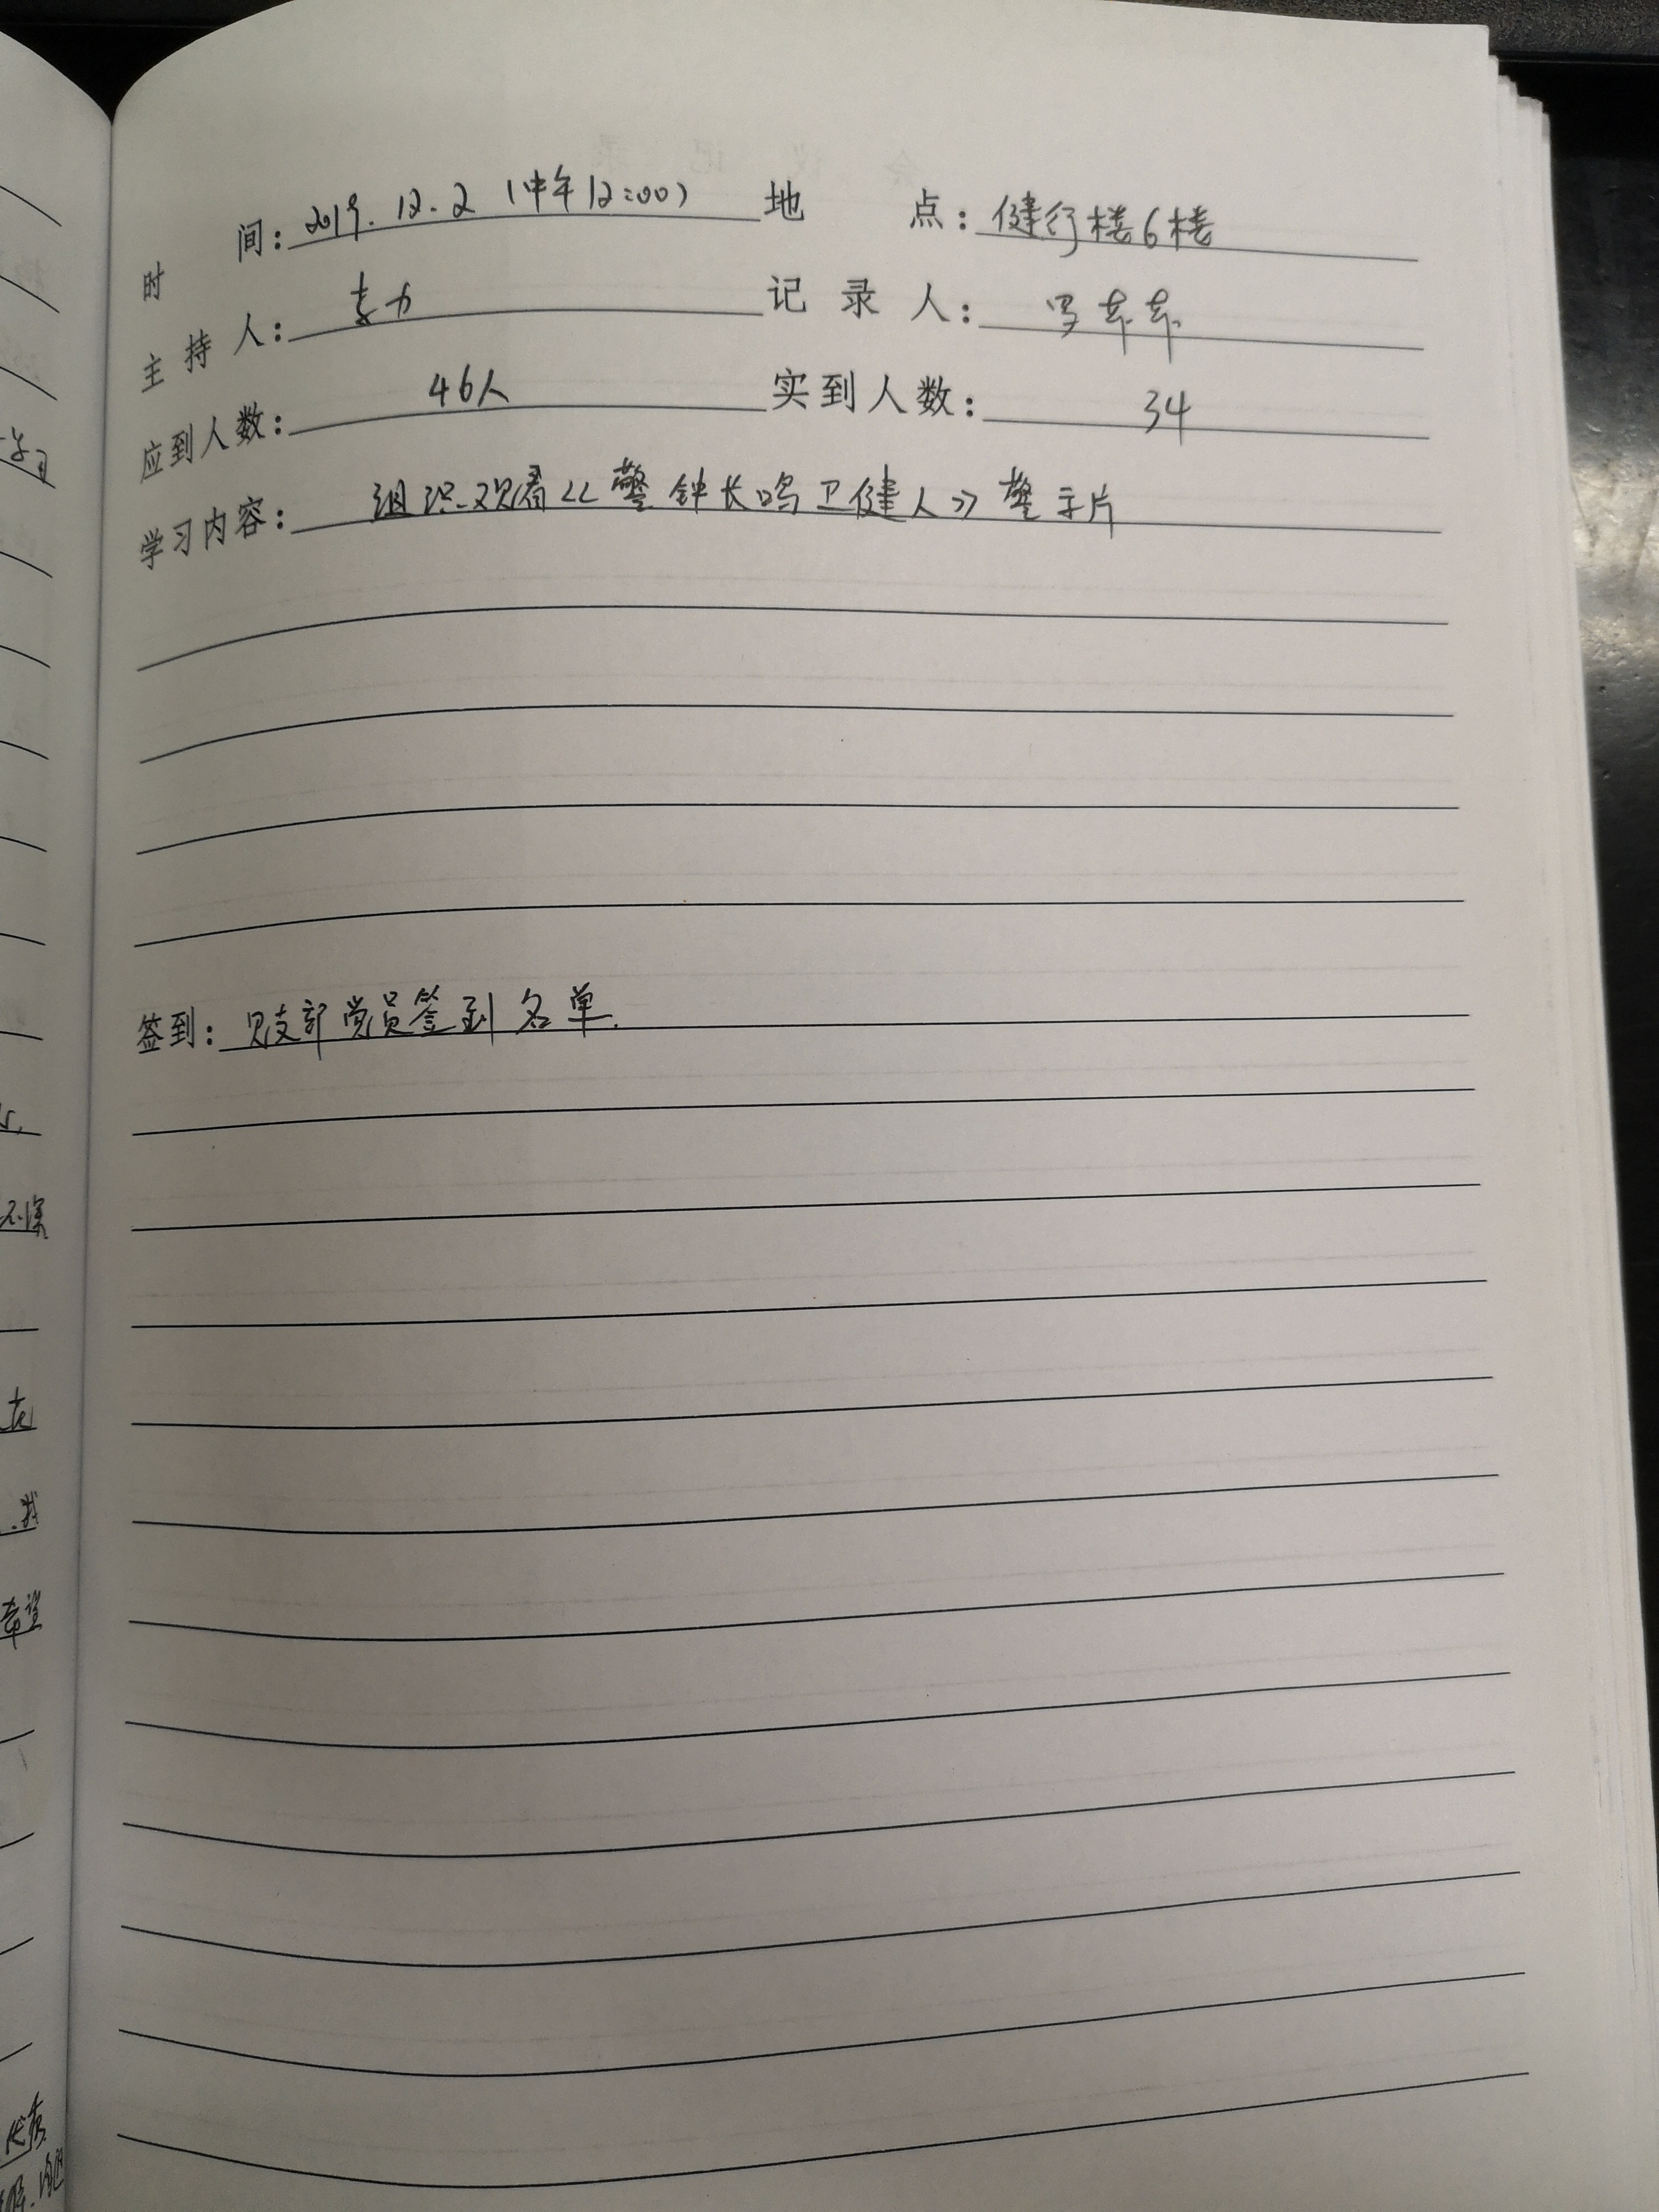 时 间: 2019.12.2 (中午12:00) 地 点: 健行楼6楼
主 持 人: 李力 记 录 人:
应到人数: 46人 实到人数: 34
学习内容: 组织观看《警钟长鸣卫健人》警示片
签到: 见支部党员签到名单.
学习
不深
在
.我
希望